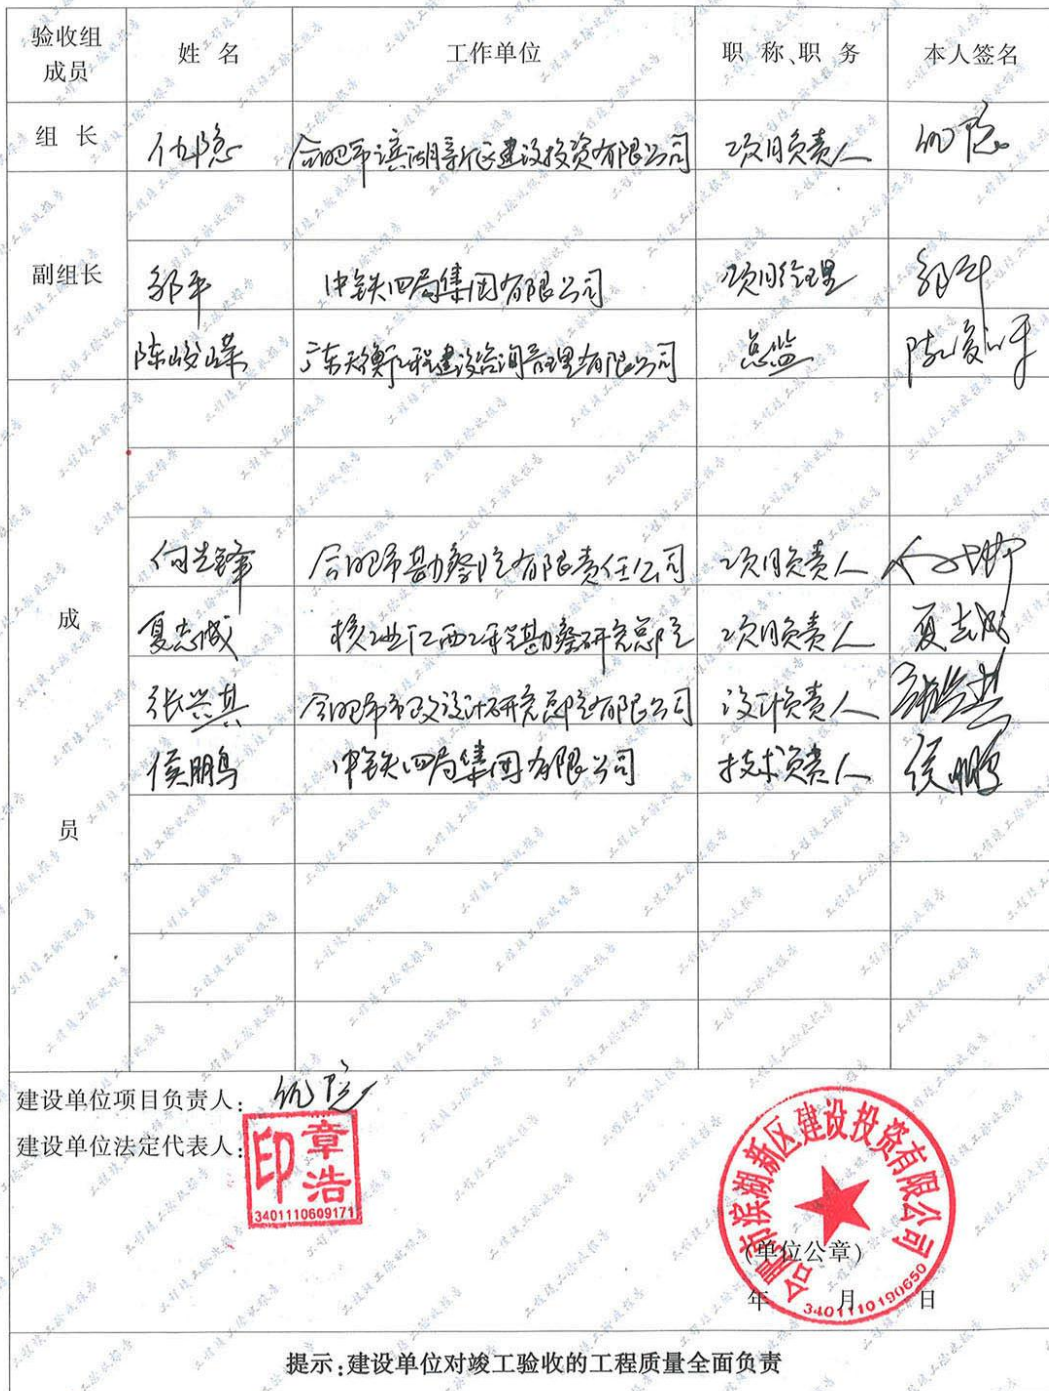 验收组成员 姓 名 工作单位 职 称、职 务 本人签名
组 长 仇隐 合肥市滨湖新区建设投资有限公司 项目负责人 仇隐
副组长 邹平 中铁四局集团有限公司 项目经理 邹平
陈峻嵘 广东天衡工程建设咨询管理有限公司 总监
成员
何先锋 合肥市勘察院有限责任公司 项目负责人
夏志诚 核工业江西工程勘察研究总院 项目负责人 夏志诚
张兴其 合肥市市政设计研究总院有限公司 设计负责人
侯鹏鸟 中铁四局集团有限公司 技术负责人 侯鹏
建设单位项目负责人: 仇隐
建设单位法定代表人:
章浩印
3401110609171
合肥市滨湖新区建设投资有限公司
(单位公章)
年 月 日
3401110190650
提示:建设单位对竣工验收的工程质量全面负责
工程竣工验收报告